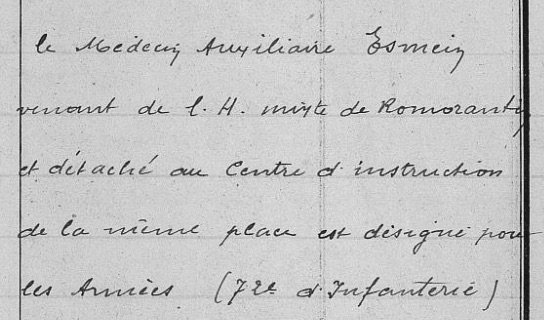 le Médecin Auxiliaire Esmein
venant de l. H. mixte de Romorantin
et détaché au Centre d'instruction
de la même place est désigné pour
les Armées (72e d'Infanterie)